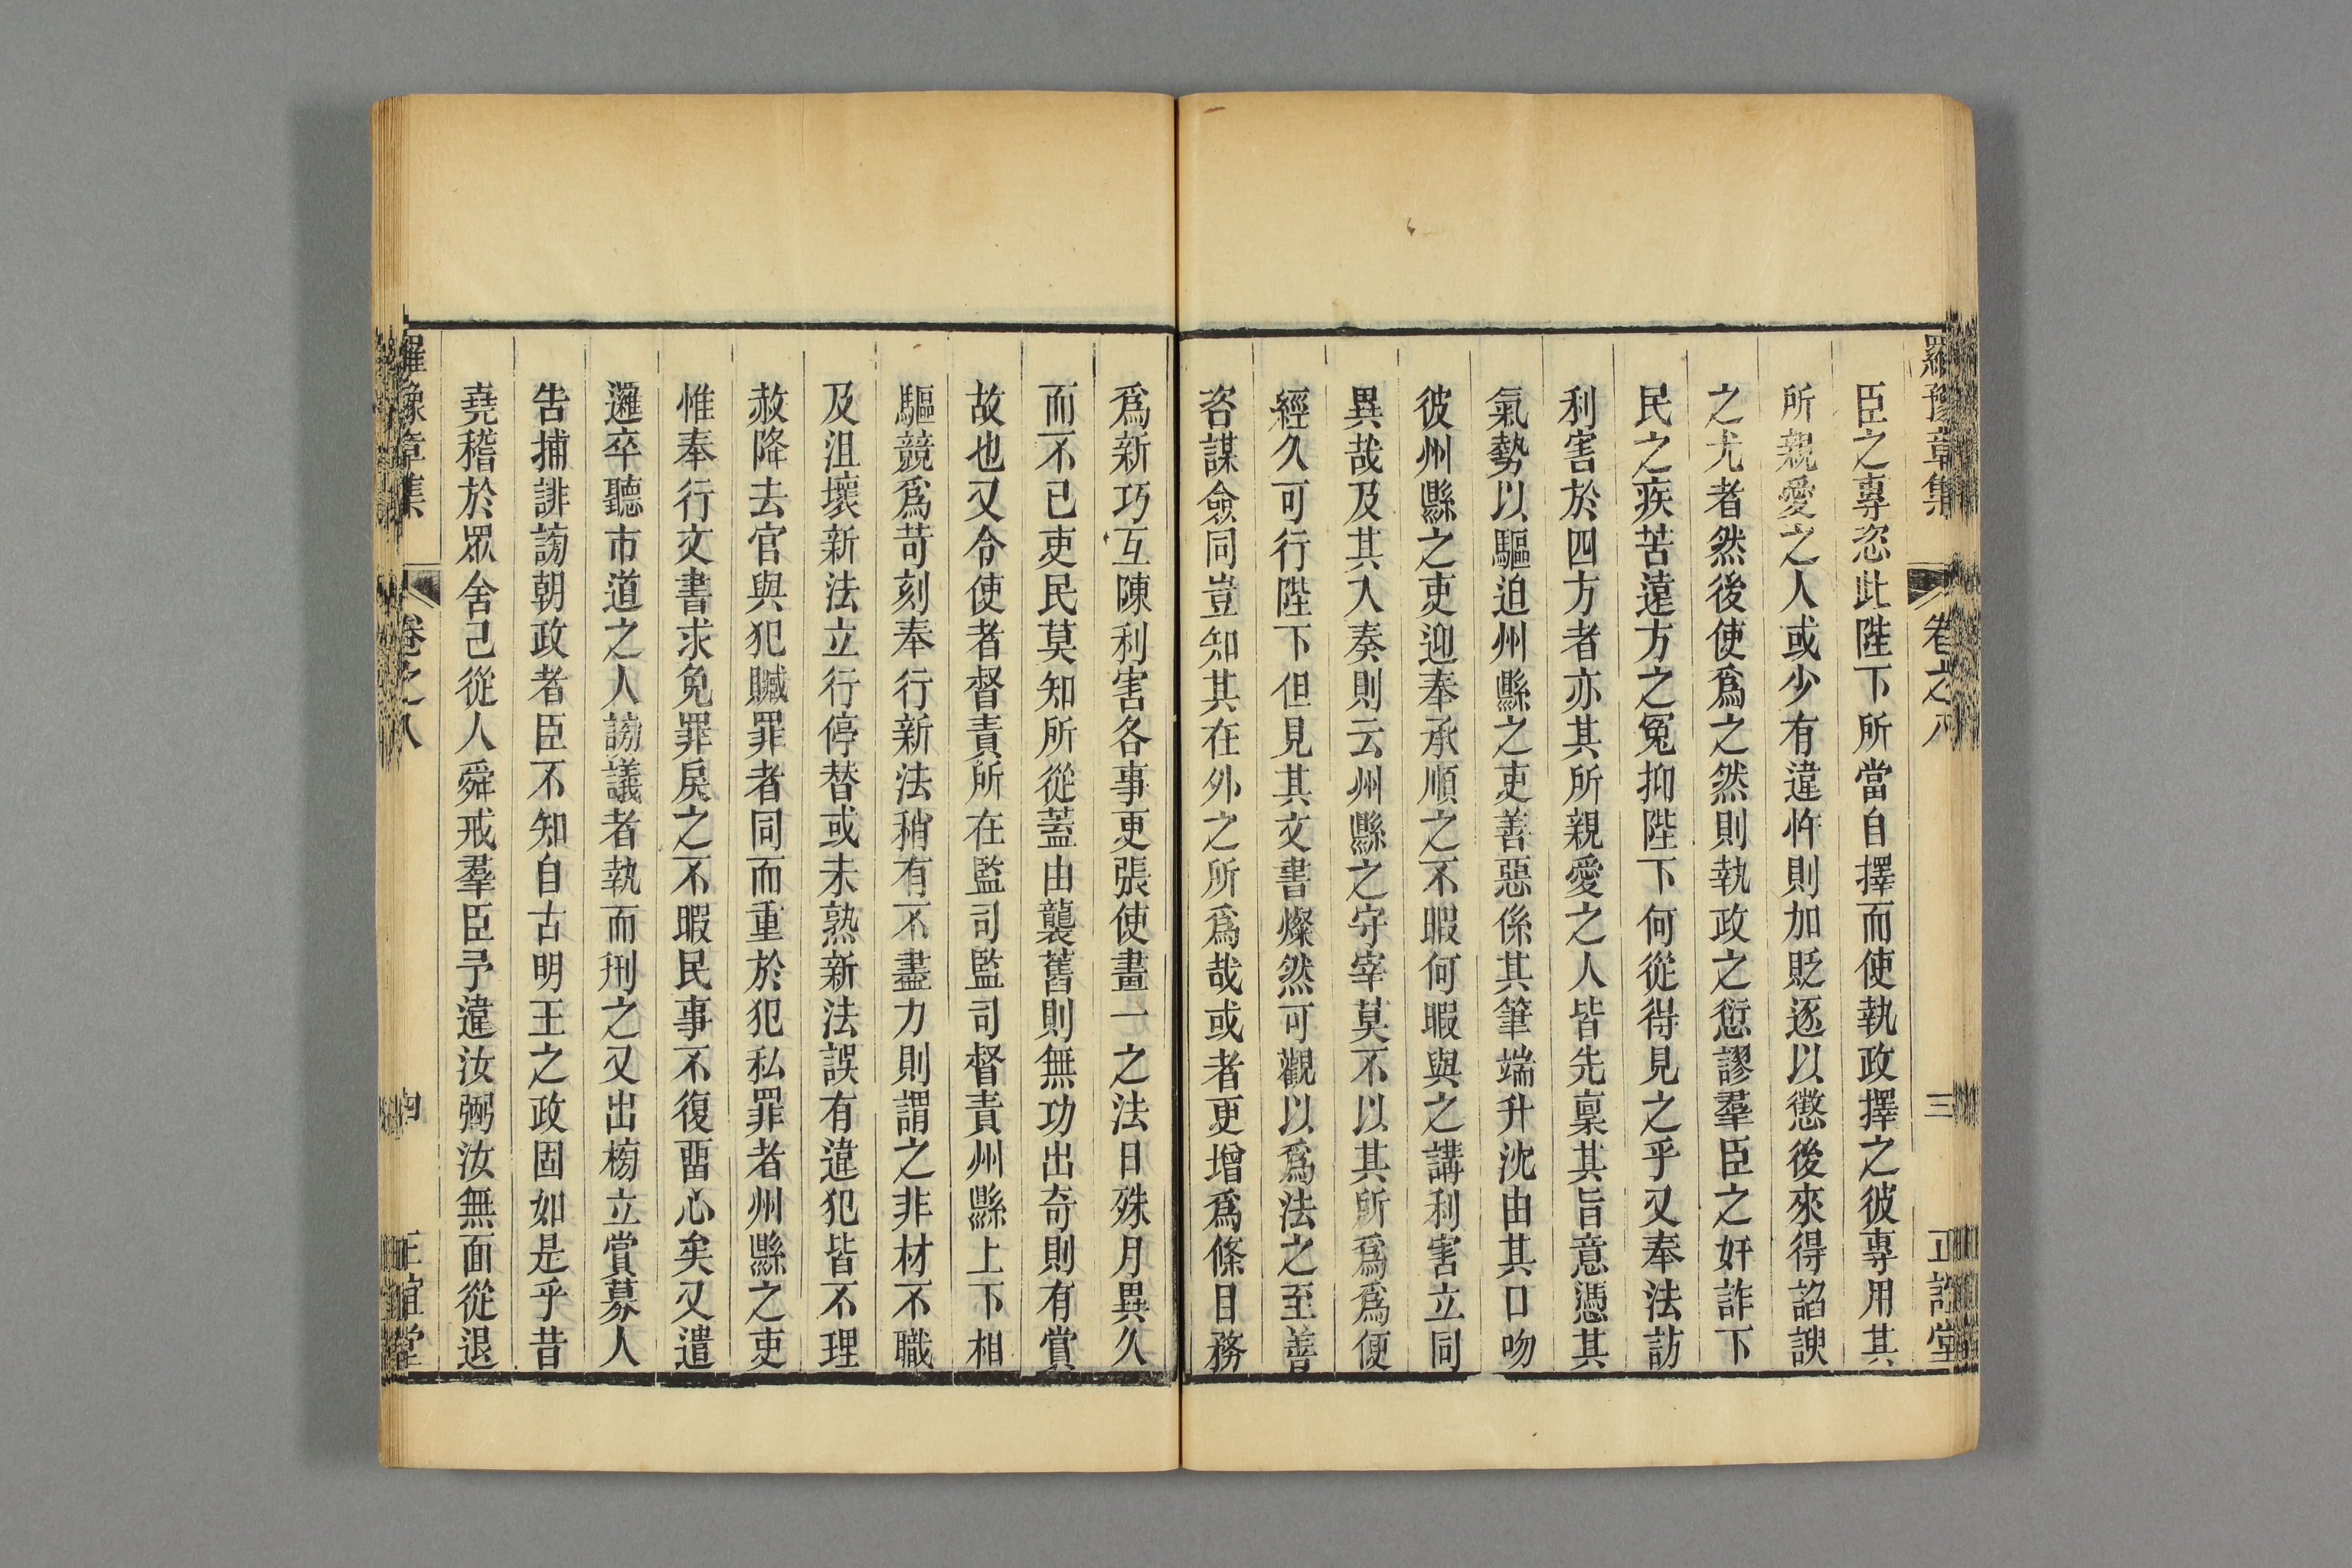 羅豫章集 卷之八 三 正誼堂
臣之專恣此陛下所當自擇而使執政擇之彼專用其
所親愛之人或少有違忤則加貶逐以懲後來得諂諛
之尤者然後使爲之然則執政之愆謬羣臣之奸詐下
民之疾苦遠方之冤抑陛下何從得見之乎又奉法訪
利害於四方者亦其所親愛之人皆先稟其旨意憑其
氣勢以驅迫州縣之吏善惡係其筆端升沈由其口吻
彼州縣之吏迎奉承順之不暇何暇與之講利害立同
異哉及其入奏則云州縣之守宰莫不以其所爲爲便
經久可行陛下但見其文書燦然可觀以爲法之至善
咨謀僉同豈知其在外之所爲哉或者更增爲條目務
爲新巧互陳利害各事更張使畫一之法日殊月異久
而不已吏民莫知所從蓋由襲舊則無功出奇則有賞
故也又令使者督責所在監司監司督責州縣上下相
驅競爲苛刻奉行新法稍有不盡力則謂之非材不職
及沮壞新法立行停替或未熟新法誤有違犯皆不理
赦降去官與犯贓罪者同而重於犯私罪者州縣之吏
惟奉行文書求免罪戾之不暇民事不復畱心矣又遣
邏卒聽市道之人謗議者執而刑之又出榜立賞募人
告捕誹謗朝政者臣不知自古明王之政固如是乎昔
堯稽於眾舍己從人舜戒羣臣予違汝弼汝無面從退
羅豫章集 卷之八 四 正誼堂